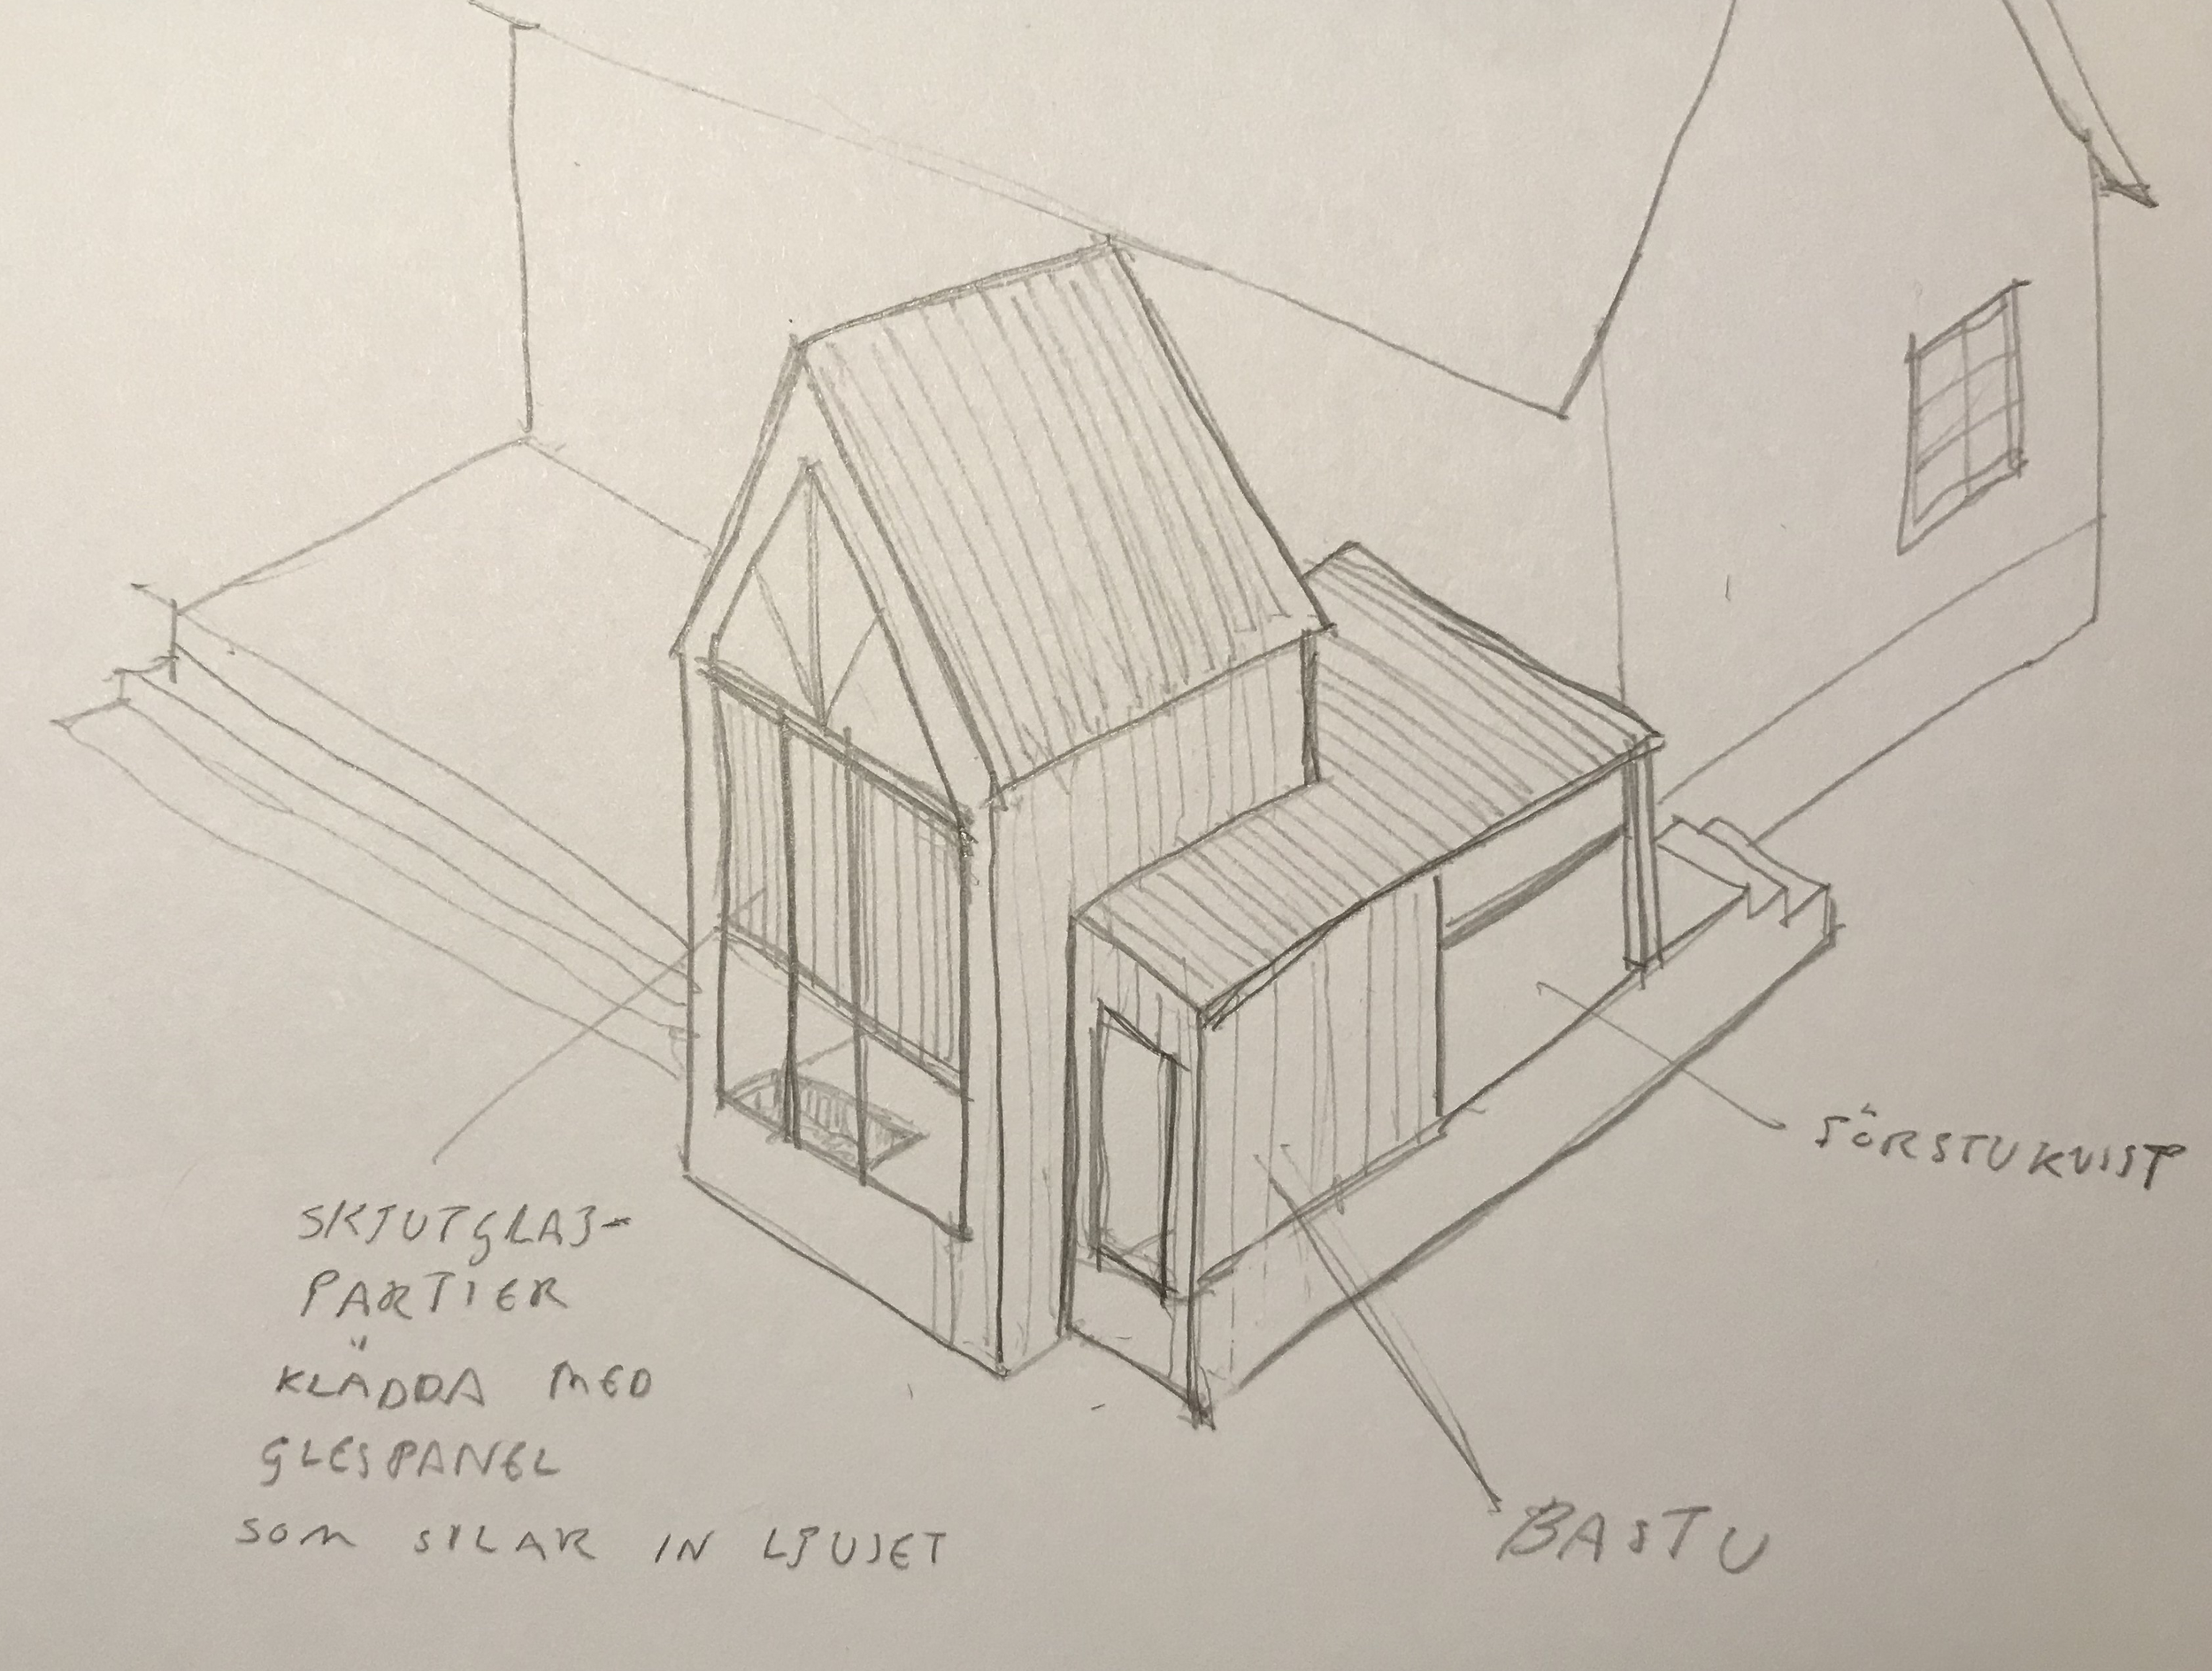 SKJUTGLAS-
PARTIER
KLÄDDA MED
GLESPANEL
SOM SILAR IN LJUSET
FÖRSTUKVIST
BASTU